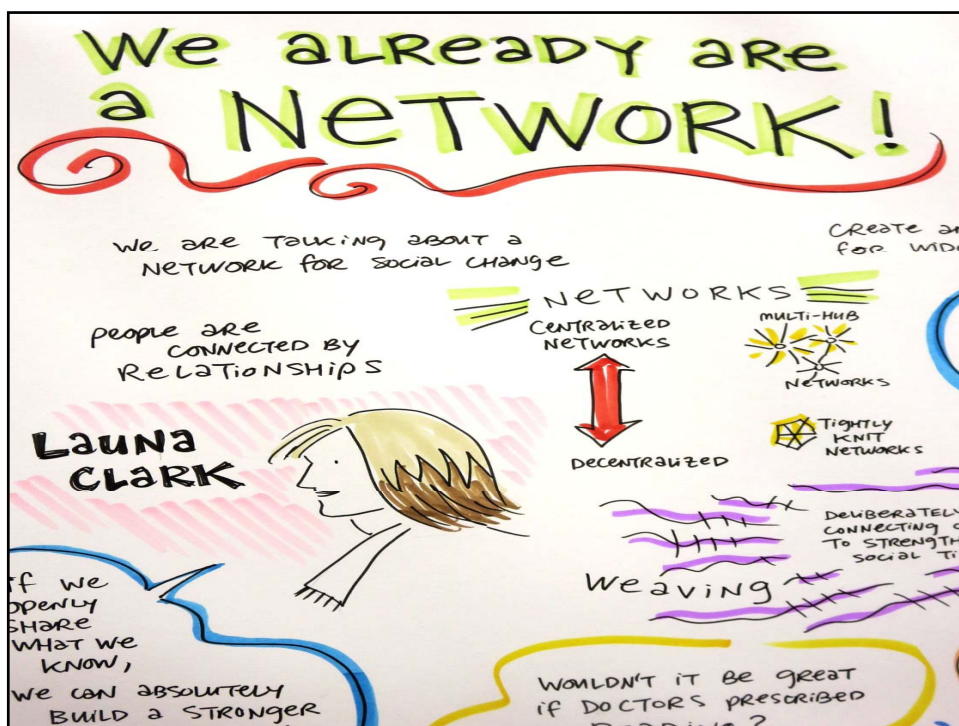 We aLReaDY are
a NeTWORK!
We are TaLKiNG aBOUT a
NeTWORK FOR SOCiaL CHaNGe
CReaTe
FOR
PeOPLe are
CONNeCTeD BY
ReLaTiONSHiPS
NeTWORKS
CeNTRaLiZeD
NeTWORKS
DeCeNTRaLiZeD
MULTi-HUB
NeTWORKS
TiGHTLY
KNiT
NeTWORKS
LaUNa
CLaRK
DeLiBeRaTeLY
CONNeCTiNG
TO
SOCiaL
WeaViNG
if We
OPeNLY
SHaRe
WHaT We
KNOW,
We CaN aBSOLUTeLY
BUiLD a STRONGeR
WOULDN'T iT Be GReaT
if DOCTORS PReSCRiBeD